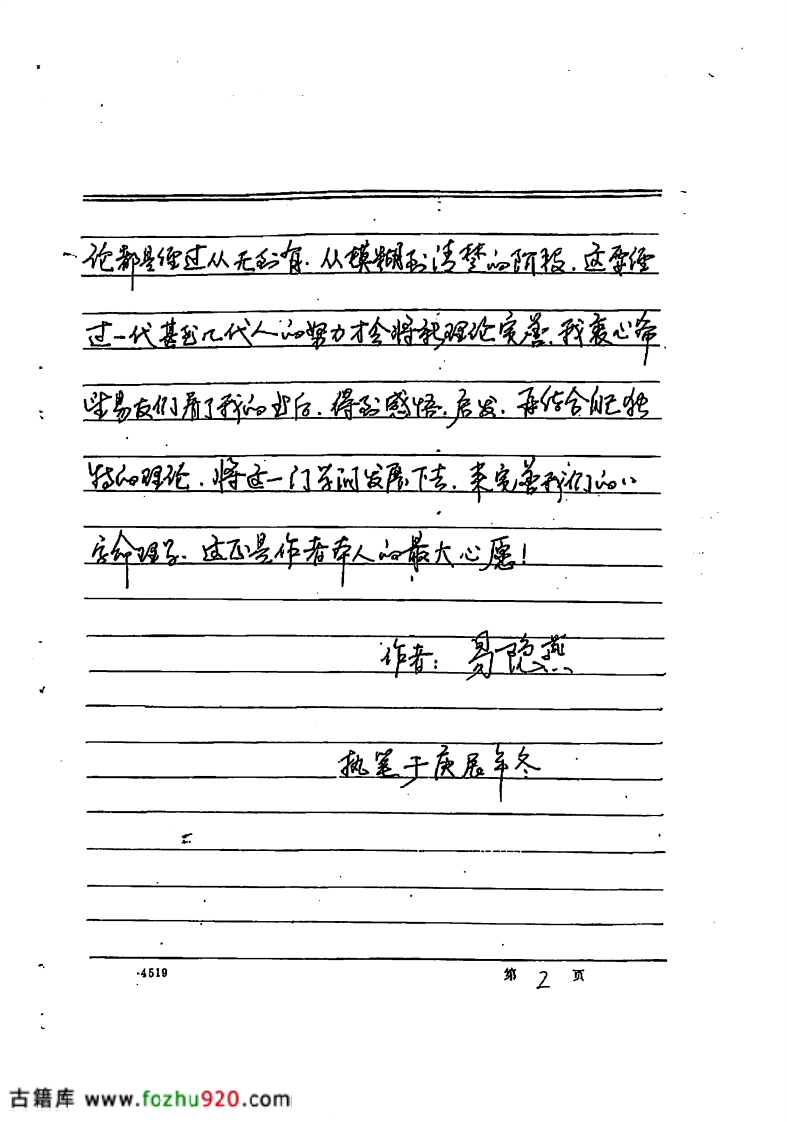 论都是经过从无到有,从模糊到清楚的阶段,这要经
过一代甚至几代人的努力才会将新理论完善,我衷心希
望易友们看了我的书后,得到感悟、启发,再结合自己独
特的理论,将这一门学问发展下去,来完善我们的八
字命理学,这正是作者本人的最大心愿!
作者:易隐燕
执笔于庚辰年冬
4519
第 2 页
古籍库 www.fozhu920.com